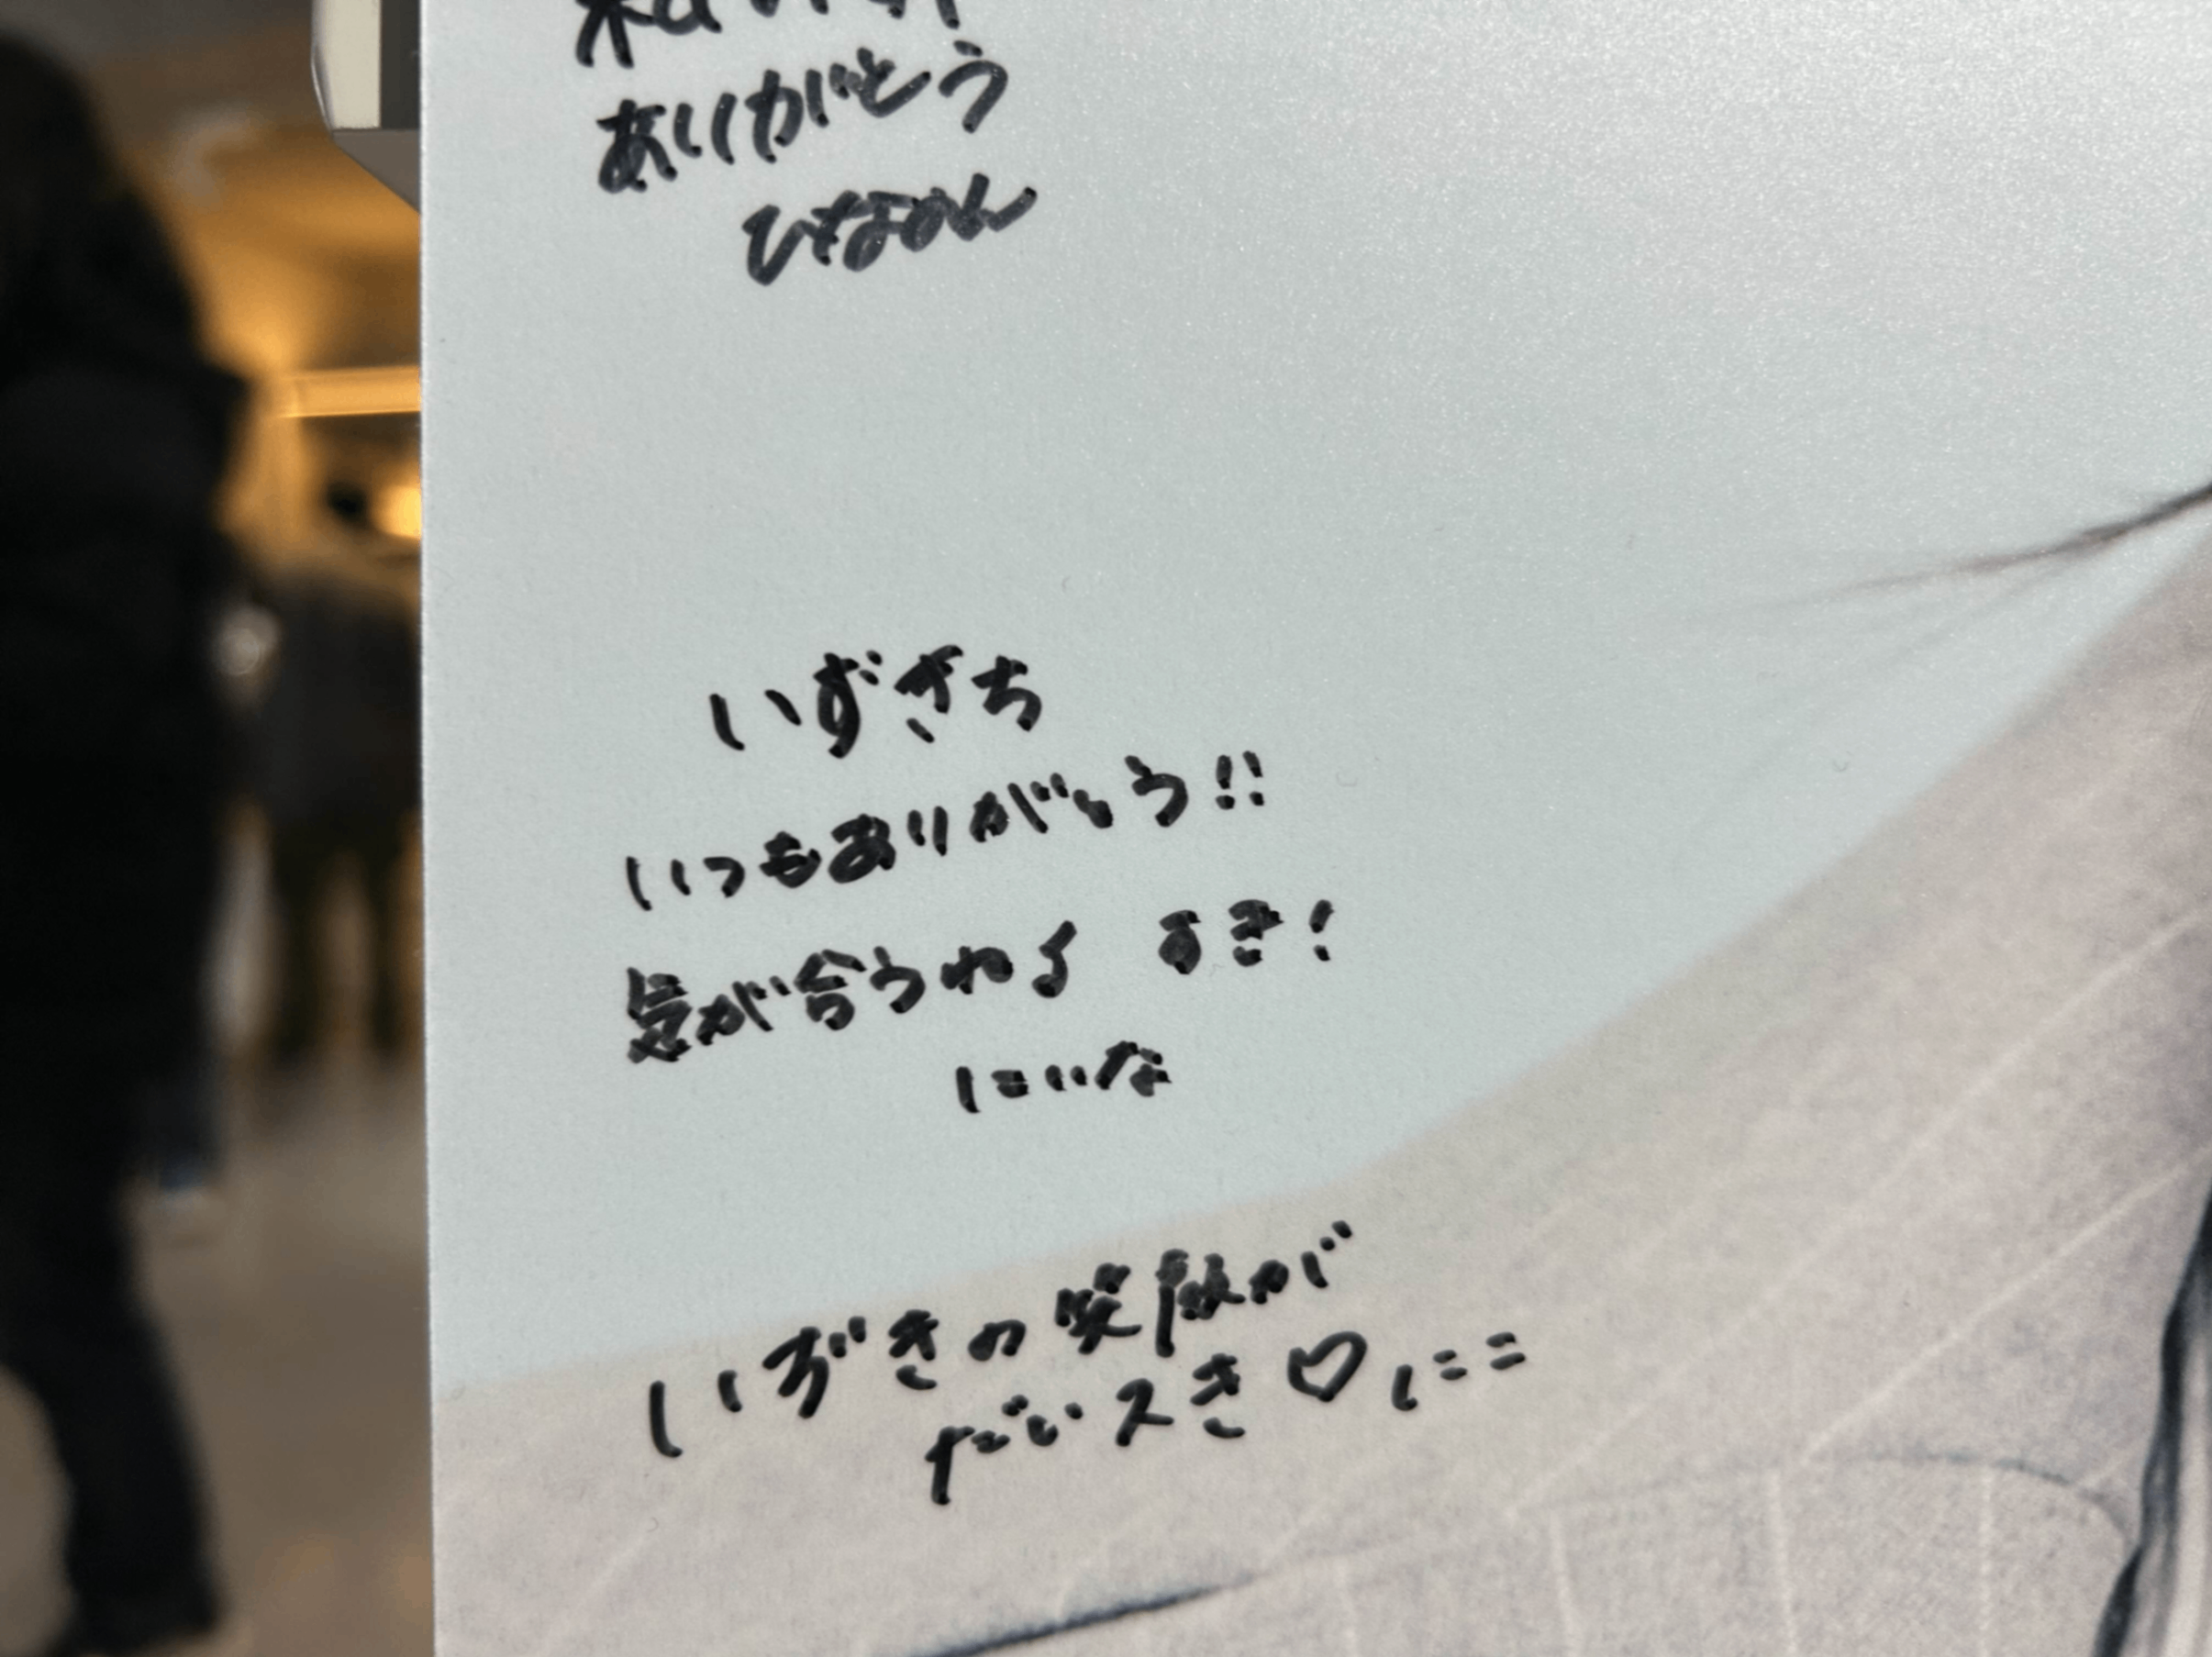 ありがとう
ひなのん
いずきち
いつもありがとう!!
気が合うねる すき!
にいな
いずきの笑顔が
だいスき♡にこ